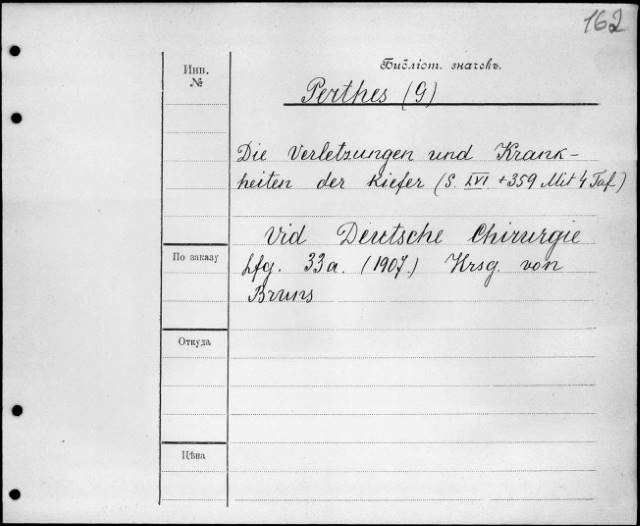 162
Инв.
№
Библіот. значекъ.
Perthes (G)
Die Verletzungen und Krank-
heiten der Kiefer (S. LVI. + 359 Mit 4 Taf.)
Vid Deutsche Chirurgie
По заказу
Lfg. 33a. (1907.) Hrsg. von
Bruns
Откуда
Цѣна